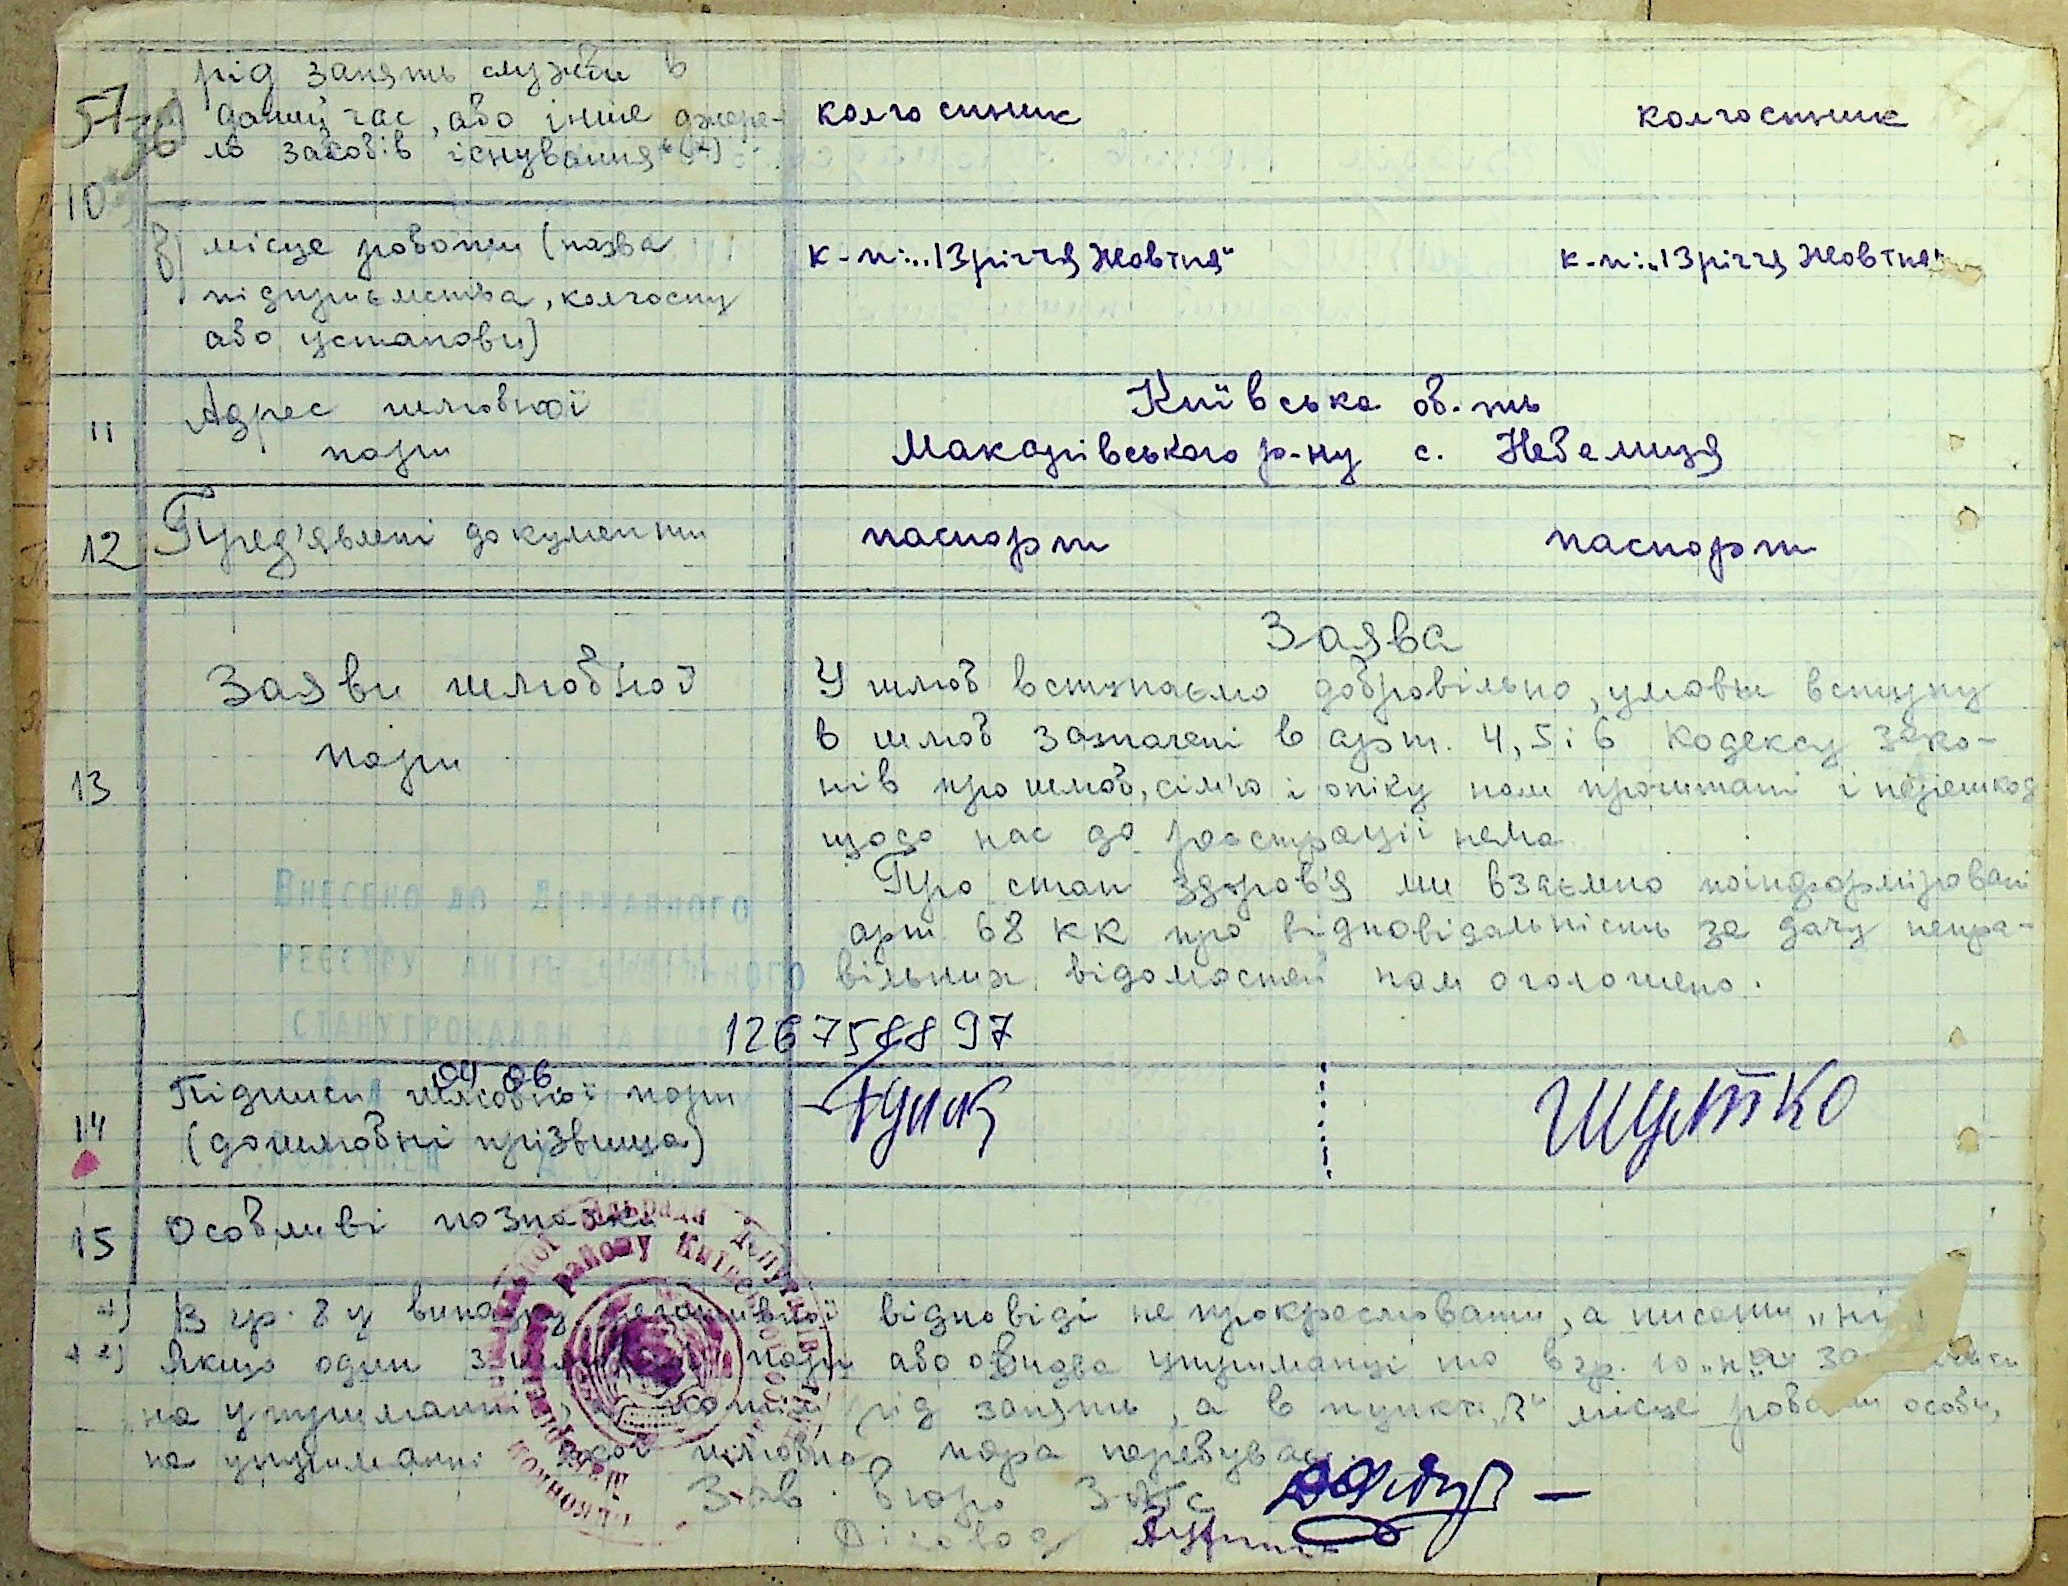 57
рід занять служби в
даний час, або інше джере-
ло засобів існування
колгоспник
колгоспник
10
в) місце роботи (назва
підприємства, колгоспу
або установи)
к-п: „13річчя Жовтня"
к-п: „13річчя Жовтня"
11
Адрес шлюбної
пари
Київська об.ть
Макарівського р-ну с. Небелиця
12
Пред'явлені документи
паспорт
паспорт
13
Заяви шлюбної
пари
Заява
У шлюб вступаємо добровільно, умови вступу
в шлюб зазначені в арт. 4, 5 і 6 Кодексу зако-
нів про шлюб, сім'ю і опіку нам прочитані і перешкод
щодо нас до реєстрації нема
Про стан здоров'я ми взаємно поінформіровані
арт. 68 КК про відповідальність за дачу непра-
вільних відомостей нам оголошено.
Внесено до Державного
реєстру актів цивільного
стану громадян за
1267588 97
04 06
14
Підписи шлюбної пари
(дошлюбні прізвища)
Шутко
15
Особливі позначки
*) В гр. 8 у випадку негативної відповіді не прокреслювати, а писати „ні"
**) Якщо один з шлюбної пари або обидва утриманці то в гр. 10
на утриманні, рід занять, а в пункті „в" місце роботи особи,
на утриманні якої шлюбна пара перебуває.
Зав. бюро Загс
Діловод